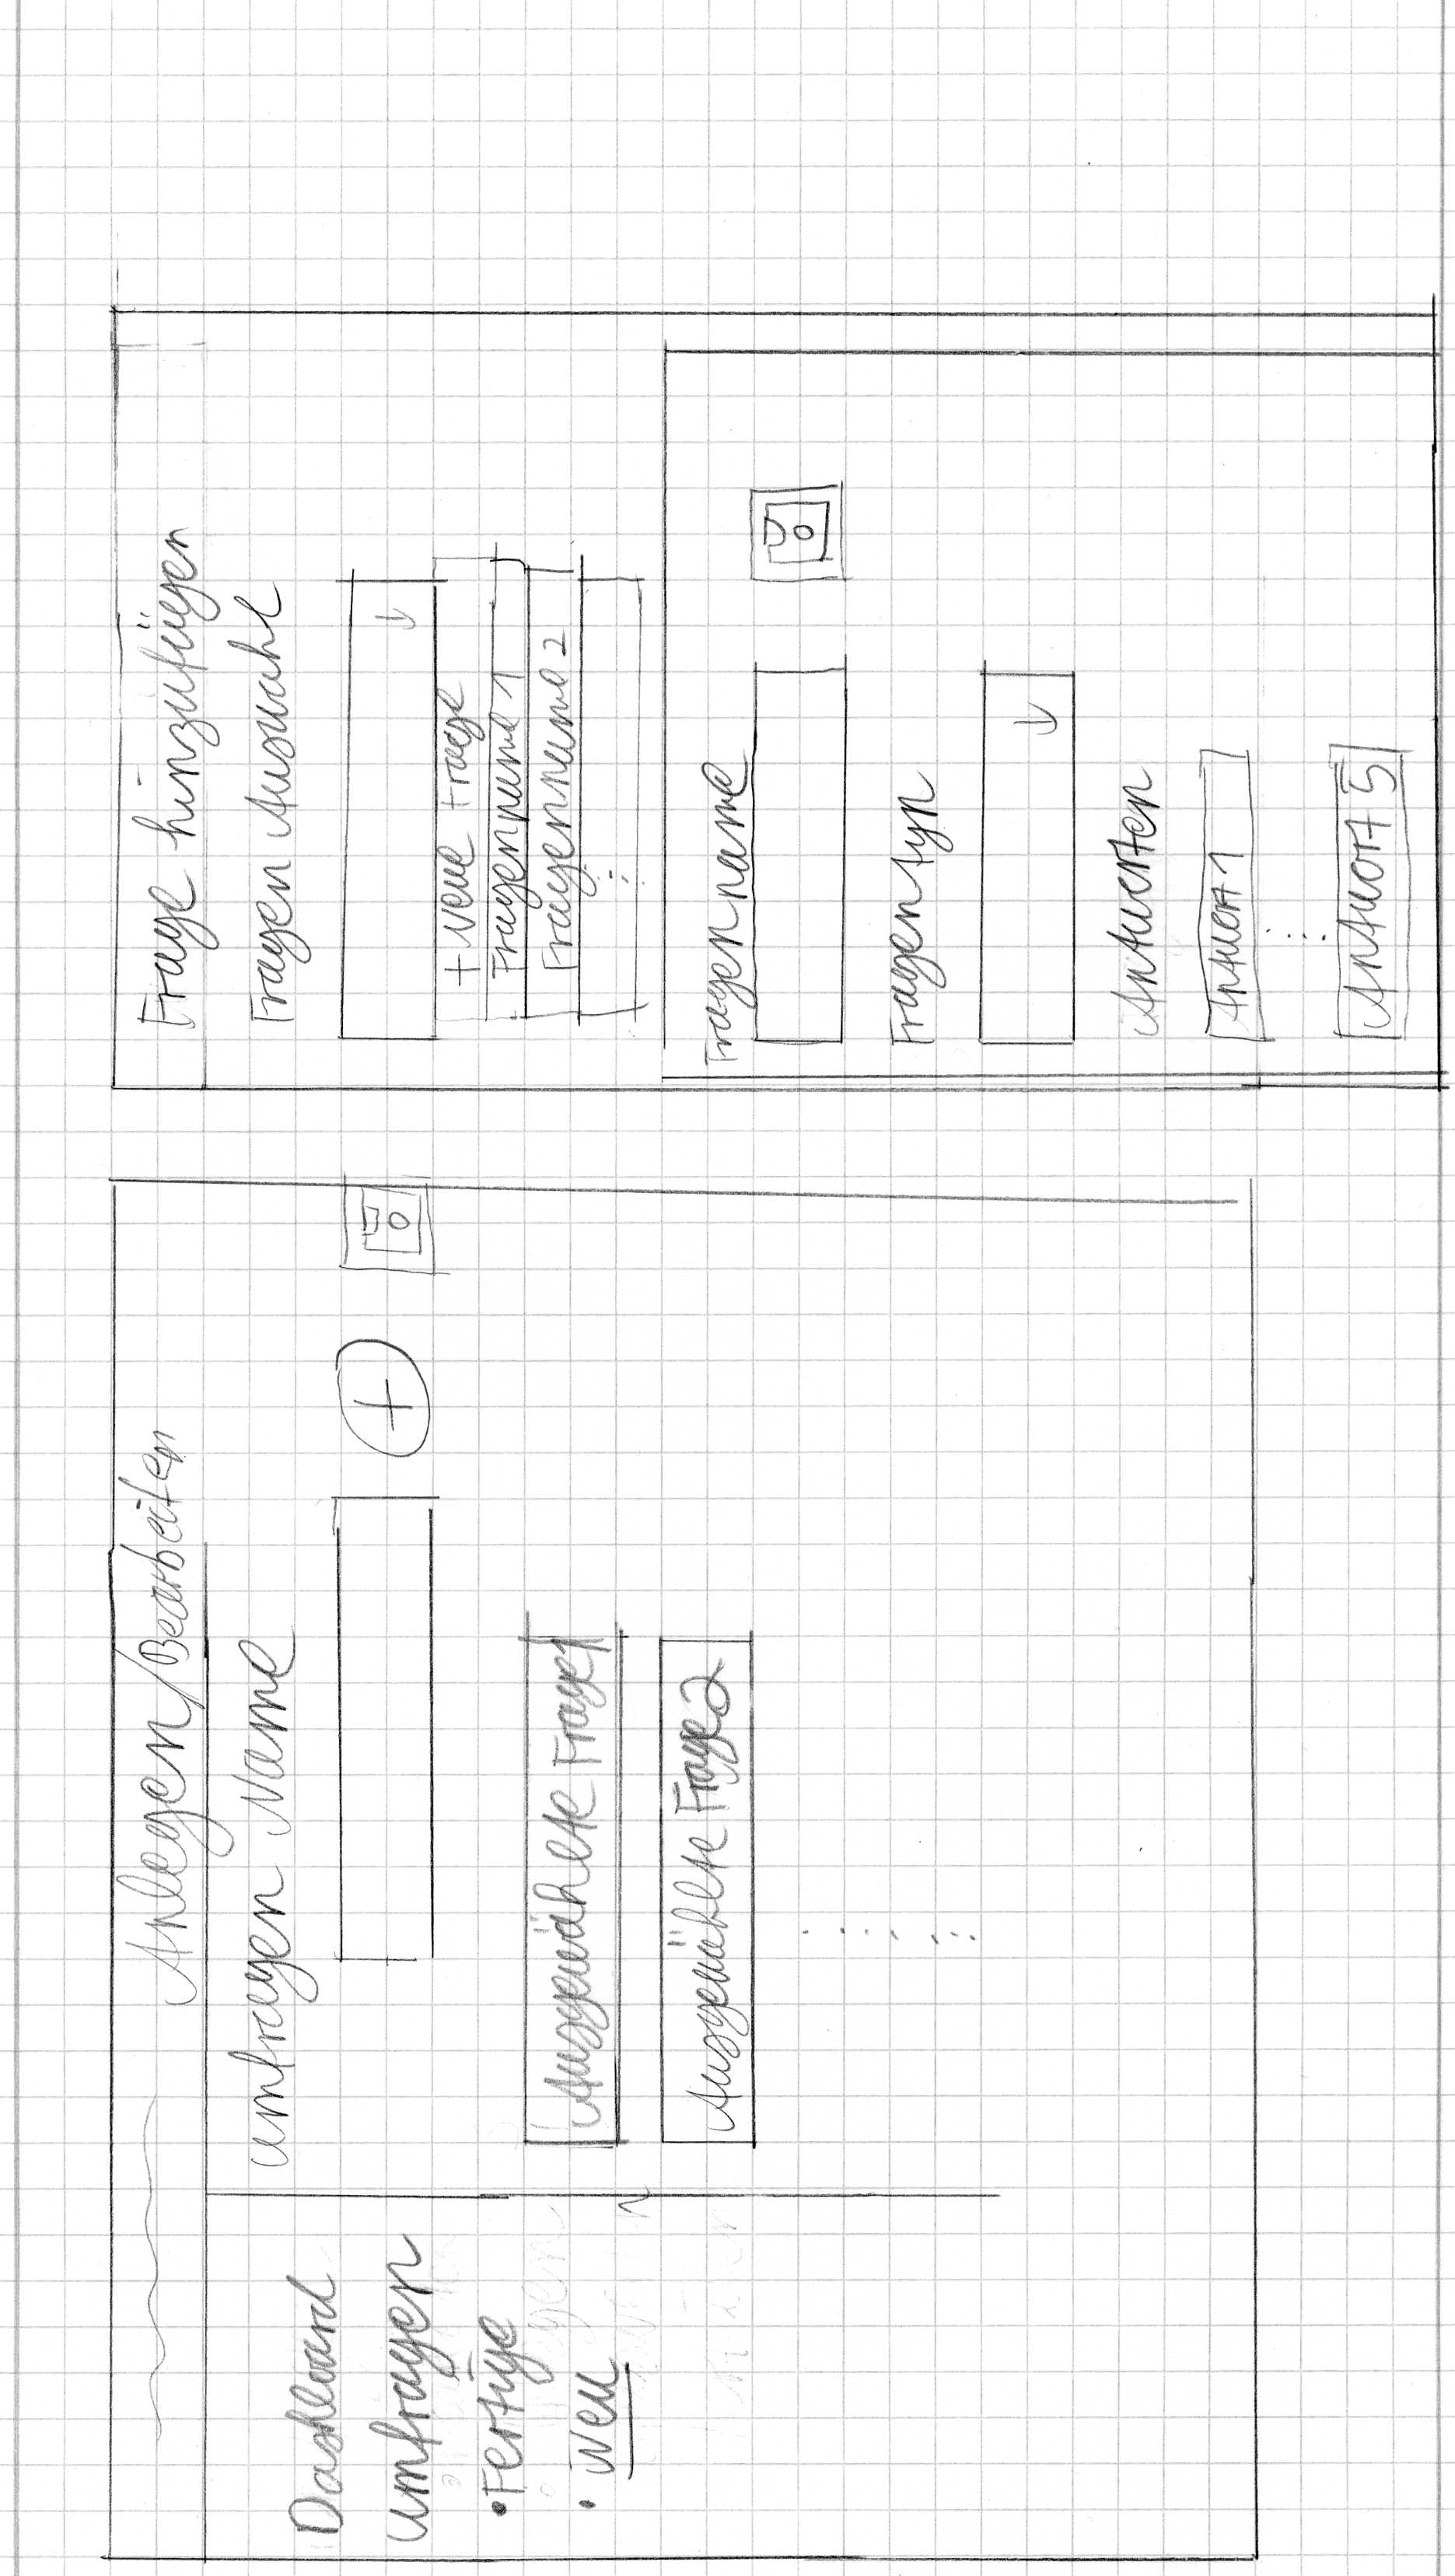 Anlegen/Bearbeiten
Dashboard
Umfragen
• Fertige
• Neu
Umfragen Name
+
Ausgewählte Frage1
Ausgewählte Frage2
Frage hinzufügen
Fragen Auswahl
+ Neue Frage
Fragenname 1
Fragenname 2
Fragenname
Fragentyp
Antworten
Antwort 1
Antwort 5